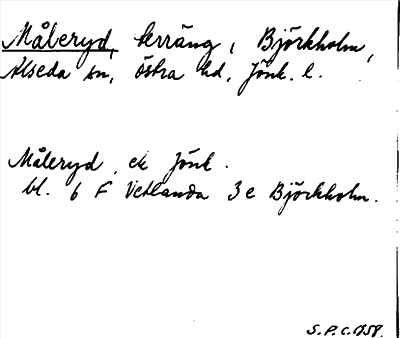 Måleryd, terräng, Björkholm,
Alseda sn, Östra hd, Jönk. l.
Måleryd ek Jönk.
bl. 6 F Vetlanda 3 e Björkholm.
S.P.C. 1958.